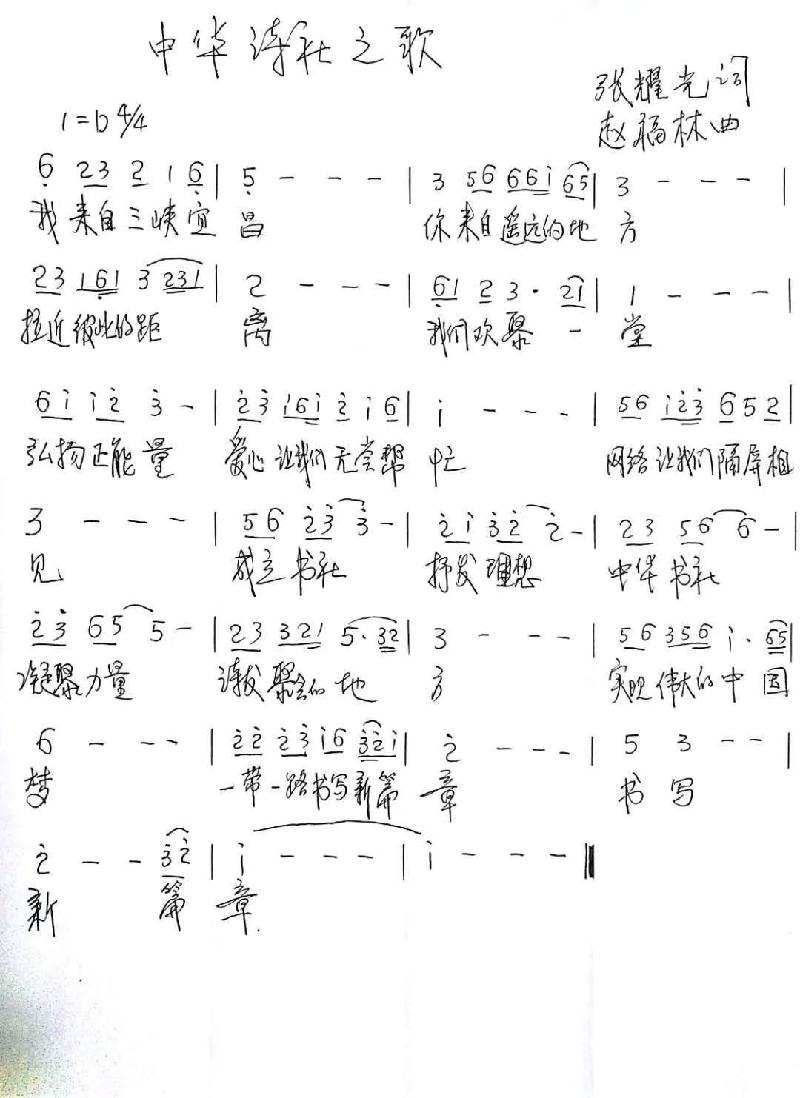 中华诗社之歌
张耀光词
1=D 4/4
赵福林曲
6 23 2 1 6 | 5 - - - | 3 56 661 65 | 3 - - - |
我来自三峡宜 昌 你来自遥远的地 方
23 161 3 231 | 2 - - - | 61 2 3· 21 | 1 - - - |
拉近彼此的距 离 我们欢聚一 堂
61 12 3 - | 23 161 2 1 6 | 1 - - - | 56 123 6 5 2 |
弘扬正能量 爱心让我们无尝帮 忙 网络让我们隔屏相
3 - - - | 56 23 3 - | 21 32 2 - | 23 56 6 - |
见 成立书社 抒发理想 中华书社
23 65 5 - | 23 321 5· 32 | 3 - - - | 56 356 1· 65 |
凝聚力量 诗友聚会的地 方 实现伟大的中国
6 - - - | 22 23 16 321 | 2 - - - | 5 3 - - |
梦 一带一路书写新篇 章 书写
2 - - 32 | 1 - - - | 1 - - - ||
新 篇 章